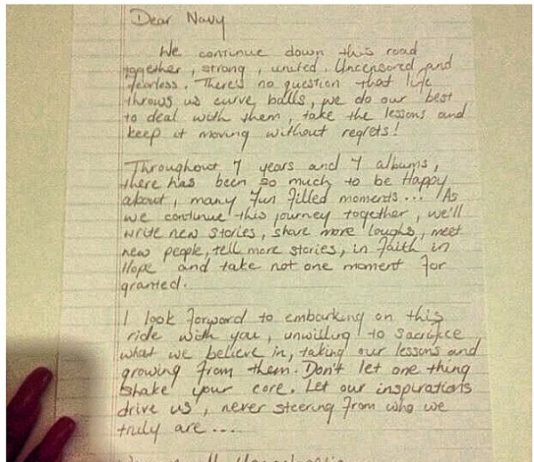 Dear Navy
We continue down this road
together, strong, united. Uncensored and
fearless. There's no question that life
throws us curve balls, we do our best
to deal with them, take the lessons and
keep it moving without regrets!
Throughout 7 years and 7 albums,
there has been so much to be Happy
about, many Fun Filled moments... As
we continue this journey together, we'll
write new stories, share more laughs, meet
new people, tell more stories, in Faith in
Hope and take not one moment For
granted.
I look Forward to embarking on this
ride with you, unwilling to Sacrifice
what we believe in, taking our lessons and
growing From them. Don't let one thing
shake your core. Let our inspirations
drive us, never steering From who we
truly are...